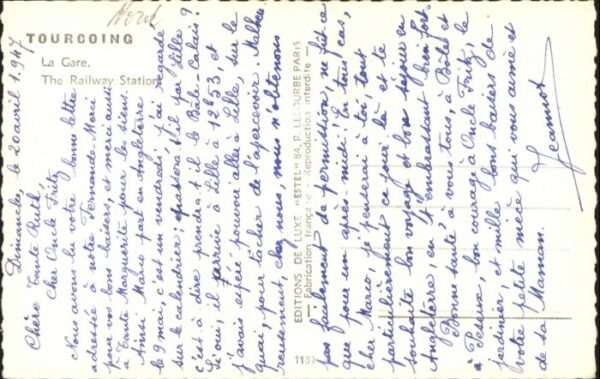 Nord
TOURCOING
La Gare.
The Railway Station
Dimanche, le 20 avril 1.947
Chère Tante Ruth,
cher Oncle Fritz,
Nous avons lu votre bonne lettre
adressée à notre Fernande. Merci
pour vos bons baisers, et merci aussi
à Tante Marguerite pour les siens.
Ainsi Marco part en Angleterre
le 9 mai, c'est un vendredi, j'ai regardé
sur le calendrier; passera-t'il par Lille
c'est à dire prendra t il le Bâle-Calais?
Si oui, il arrive à Lille à 12h53 et
j'avais espéré pouvoir aller à Lille, sur le
quai, pour tâcher de l'apercevoir. Malheu
reusement, chez nous, nous n'obtenons
EDITIONS DE LUXE "ESTEL" 84, R. LECOURBE PARIS
Fabrication française - Reproduction interdite
pas facilement de permission, ne fut ce
que pour un après-midi. En tous cas,
cher Marco, je penserai à toi, tout
particulièrement ce jour là, et te
souhaite bon voyage et bon séjour en
Angleterre en t'embrassant bien fort
Bonne santé à vous tous, à Bôle et
à Peseux, bon courage à Oncle Fritz, le
jardinier, et mille bons baisers de
votre petite nièce qui vous aime et
de sa Maman.
Jeannot